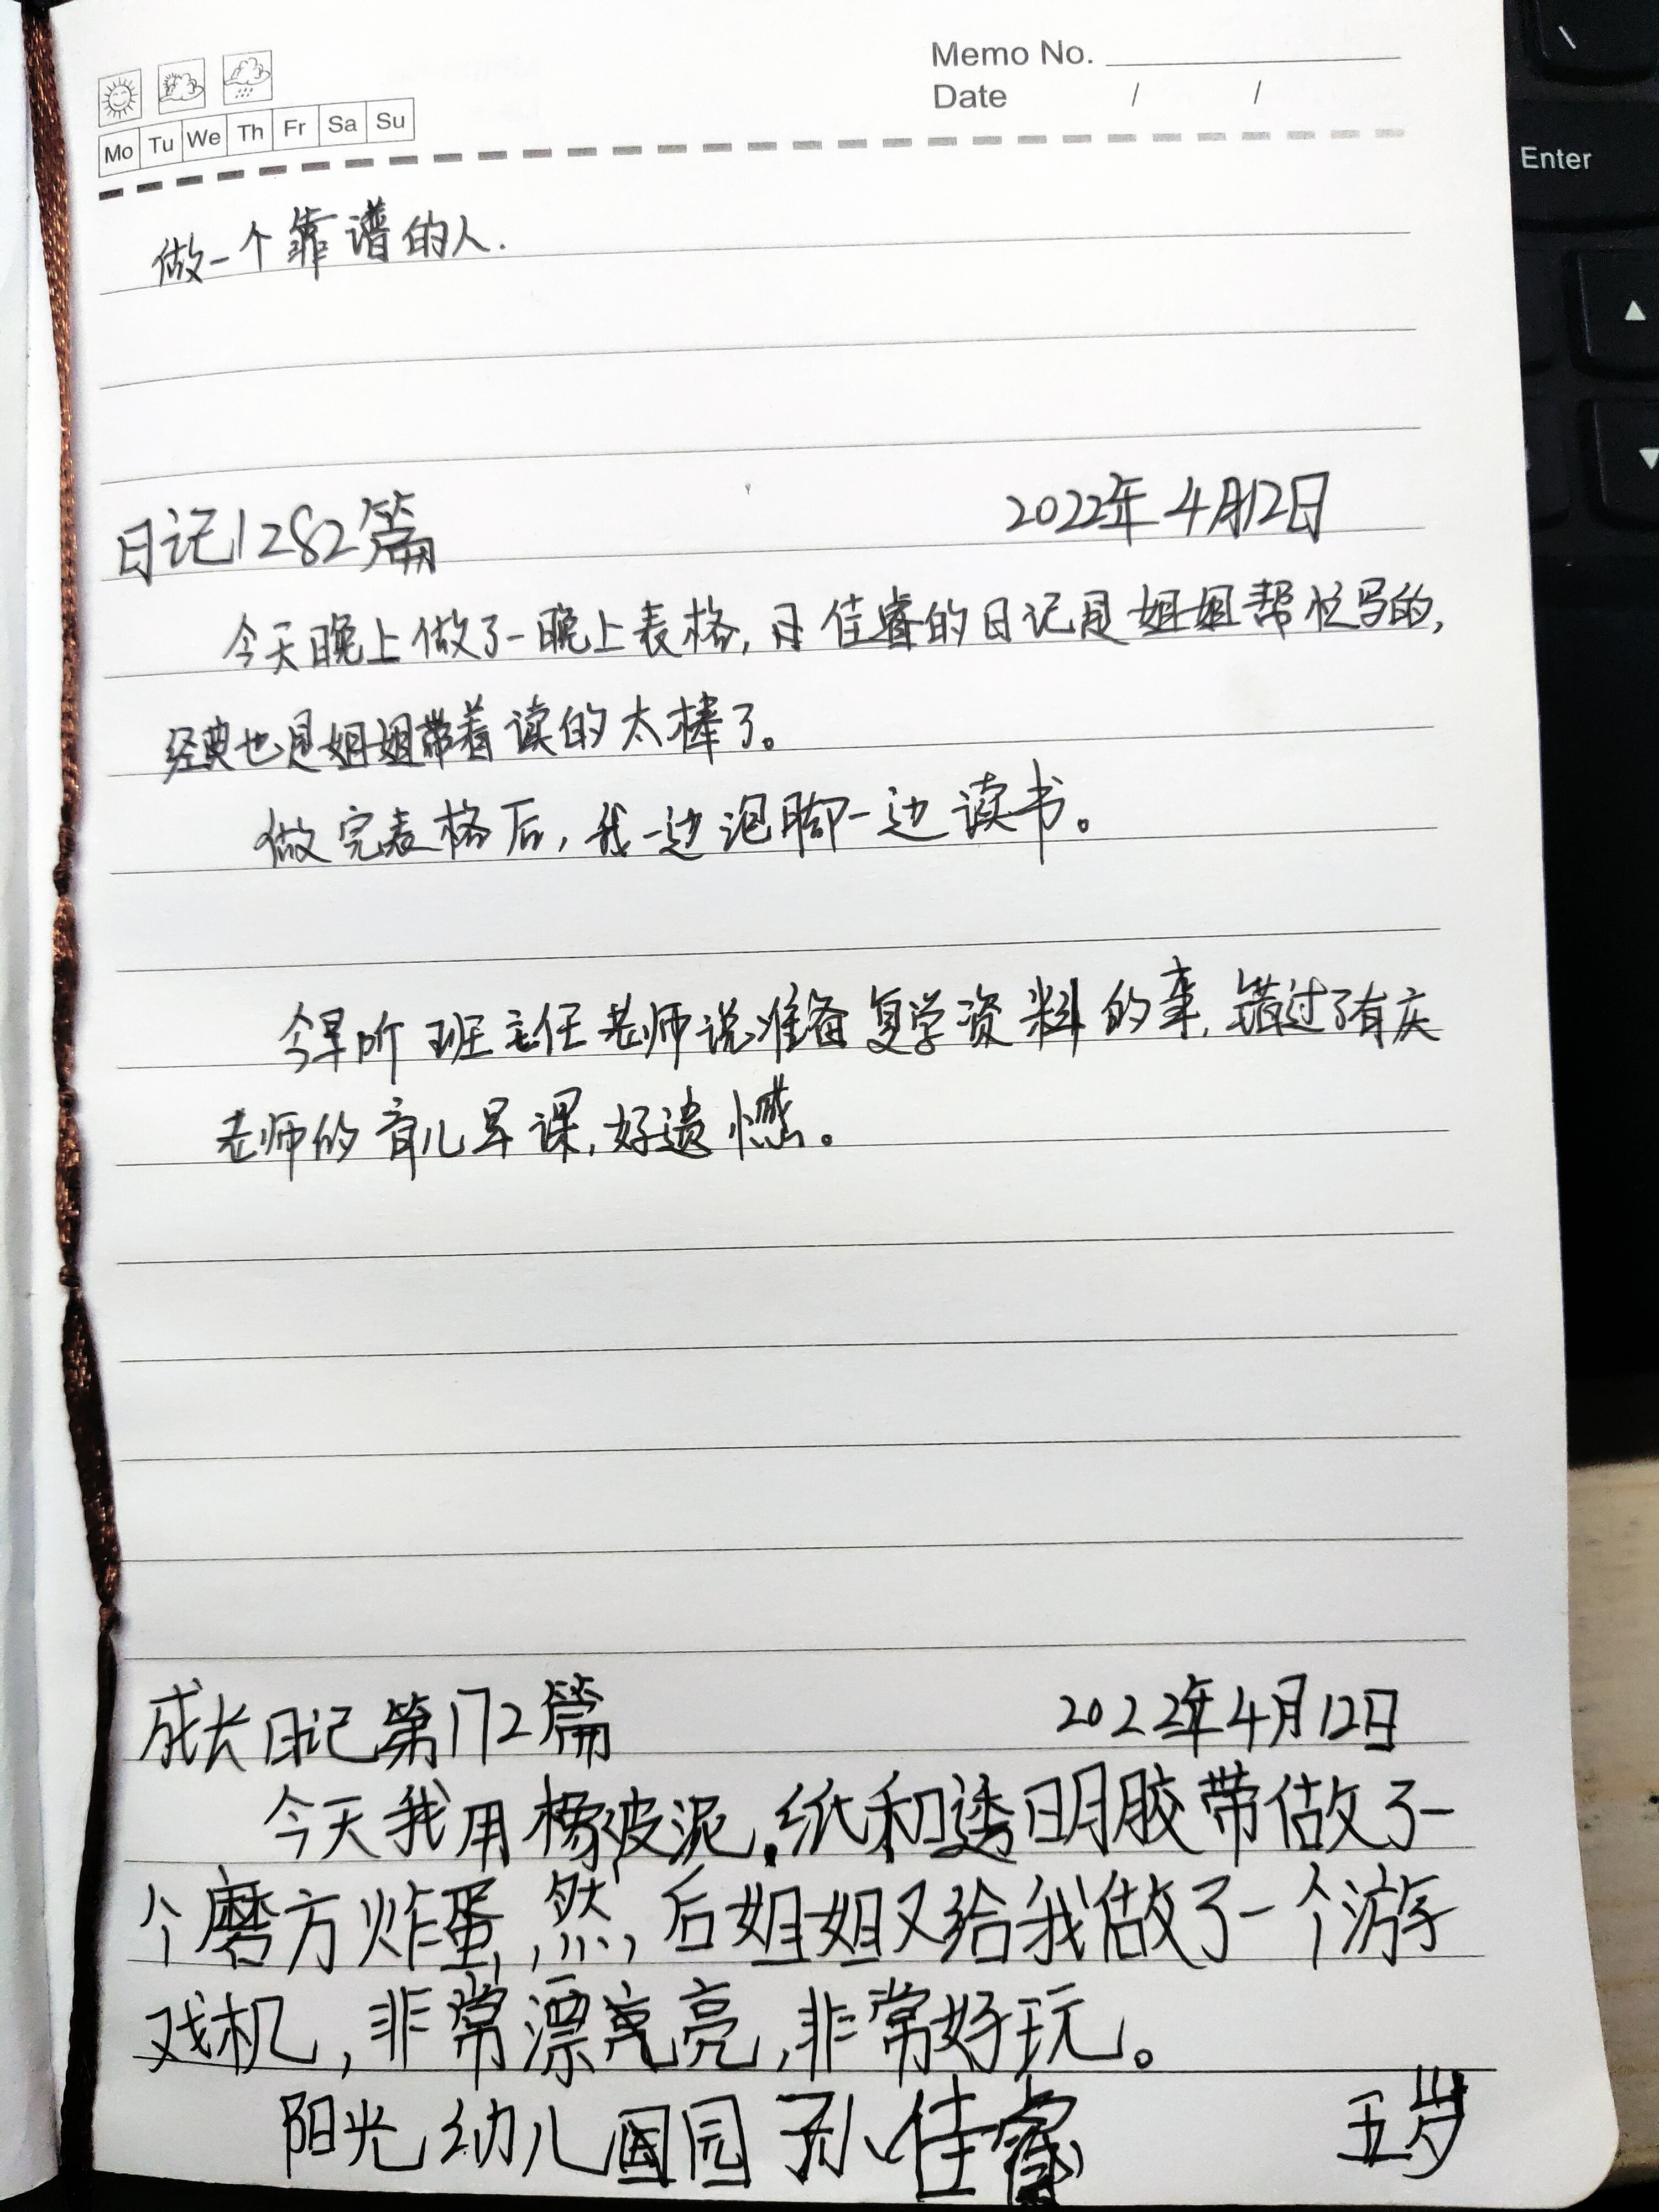 Memo No.
Date / /
Mo Tu We Th Fr Sa Su
做一个靠谱的人.
日记1282篇 2022年4月12日
今天晚上做了一晚上表格,月佳睿的日记是姐姐帮忙写的,
经典也是姐姐带着读的太棒了。
做完表格后,我一边泡脚一边读书。
今早听班主任老师说准备复学资料的事,错过了有庆
老师的育儿早课,好遗憾。
成长日记第172篇 2022年4月12日
今天我用橡皮泥,纸和透明胶带做了一
个磨方炸蛋,然后姐姐又给我做了一个游
戏机,非常漂亮,非常好玩。
阳光幼儿园 孙佳睿 五岁
Enter
\